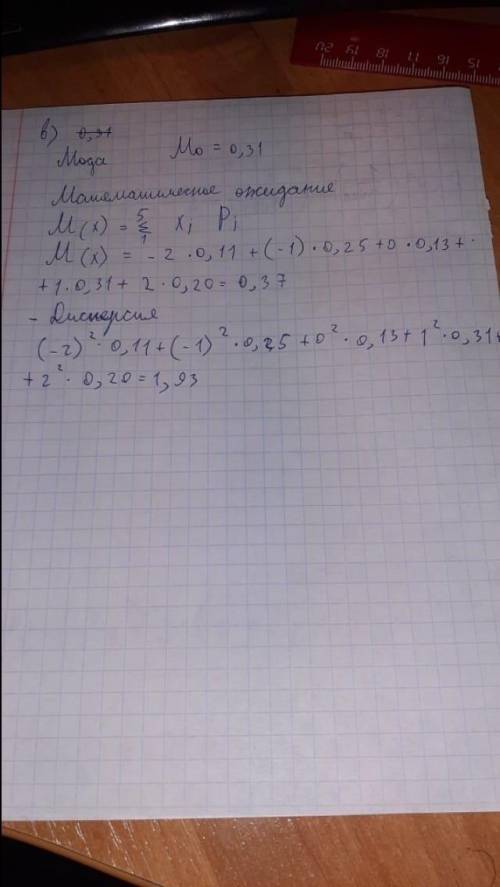 в) 0,31
Мода Мо = 0,31
Математическое ожидание
M(x) = 5 Σ 1 xi Pi
M(x) = - 2 · 0,11 + (-1) · 0,25 + 0 · 0,13 +
+ 1 · 0,31 + 2 · 0,20 = 0,37
- Дисперсия
(-2)² · 0,11 + (-1)² · 0,25 + 0² · 0,13 + 1² · 0,31 +
+ 2² · 0,20 = 1,93
20 19 18 17 16 15